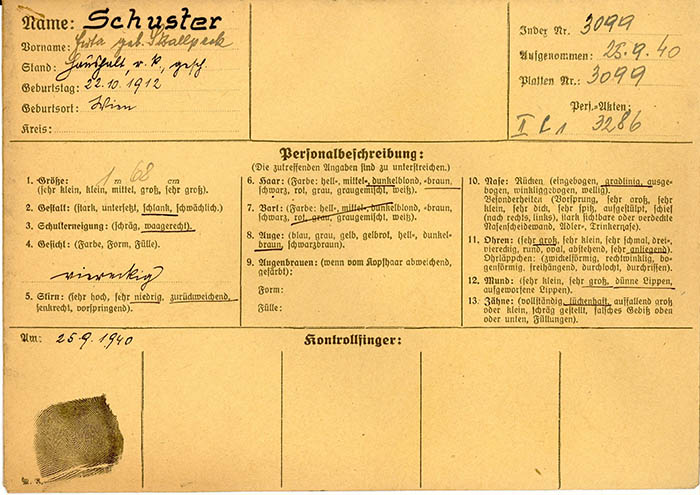 Name: Schuster
Vorname: geb.
Stand: Haushalt, r. k., gesch.
Geburtstag: 22.10.1912
Geburtsort: Wien
Kreis:
Index Nr. 3099
Aufgenommen: 25.9.40
Platten Nr.: 3099
Pers.-Akten:
3286
Personalbeschreibung:
(Die zutreffenden Angaben sind zu unterstreichen.)
1. Größe: 1 m 68 cm
(sehr klein, klein, mittel, groß, sehr groß).
2. Gestalt: (stark, untersetzt, schlank, schwächlich).
3. Schulterneigung: (schräg, waagerecht).
4. Gesicht: (Farbe, Form, Fülle).
viereckig
5. Stirn: (sehr hoch, sehr niedrig, zurückweichend,
senkrecht, vorspringend).
6. Haar: (Farbe: hell-, mittel-, dunkelblond, -braun,
schwarz, rot, grau, graugemischt, weiß).
7. Bart: (Farbe: hell-, mittel-, dunkelblond, -braun,
schwarz, rot, grau, graugemischt, weiß).
8. Auge: (blau, grau, gelb, gelbrot, hell-, dunkel-
braun, schwarzbraun).
9. Augenbrauen: (wenn vom Kopfhaar abweichend,
gefärbt):
Form:
Fülle:
10. Nase: Rücken (eingebogen, gradlinig, ausge-
bogen, winkliggebogen, wellig).
Besonderheiten (Vorsprung, sehr groß, sehr
klein, sehr dick, sehr spitz, aufgestülpt, schief
(nach rechts, links), stark sichtbare oder verdeckte
Nasenscheidewand, Adler-, Trinkernase).
11. Ohren: (sehr groß, sehr klein, sehr schmal, drei-,
viereckig, rund, oval, abstehend, sehr anliegend).
Ohrläppchen: (zwickelförmig, rechtwinklig, bo-
genförmig, freihängend, durchlocht, durchrissen).
12. Mund: (sehr klein, sehr groß, dünne Lippen,
aufgeworfene Lippen).
13. Zähne: (vollständig, lückenhaft, auffallend groß
oder klein, schräg gestellt, falsches Gebiß oben
oder unten, Füllungen).
Am: 25.9.1940
Kontrollfinger: